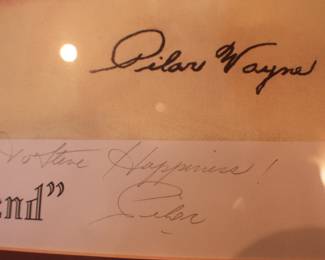 Pilar Wayne
To Steve Happiness!
end” Pilar